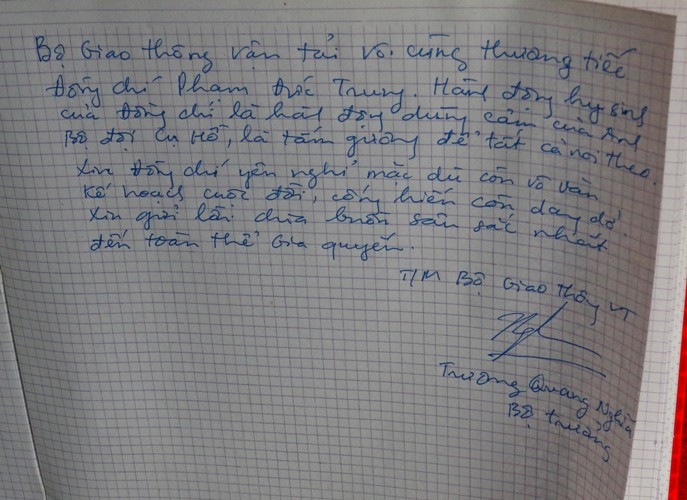 Bộ Giao thông vận tải vô cùng thương tiếc
đồng chí Phạm Đức Trung. Hành động hy sinh
của đồng chí là hành động dũng cảm của Anh
Bộ đội Cụ Hồ, là tấm gương để tất cả noi theo.
Xin đồng chí yên nghỉ mặc dù còn vô vàn
kế hoạch cuộc đời, cống hiến còn dang dở.
Xin gửi lời chia buồn sâu sắc nhất
đến toàn thể Gia quyến.
T/M Bộ Giao thông VT
Trương Quang Nghĩa
Bộ trưởng